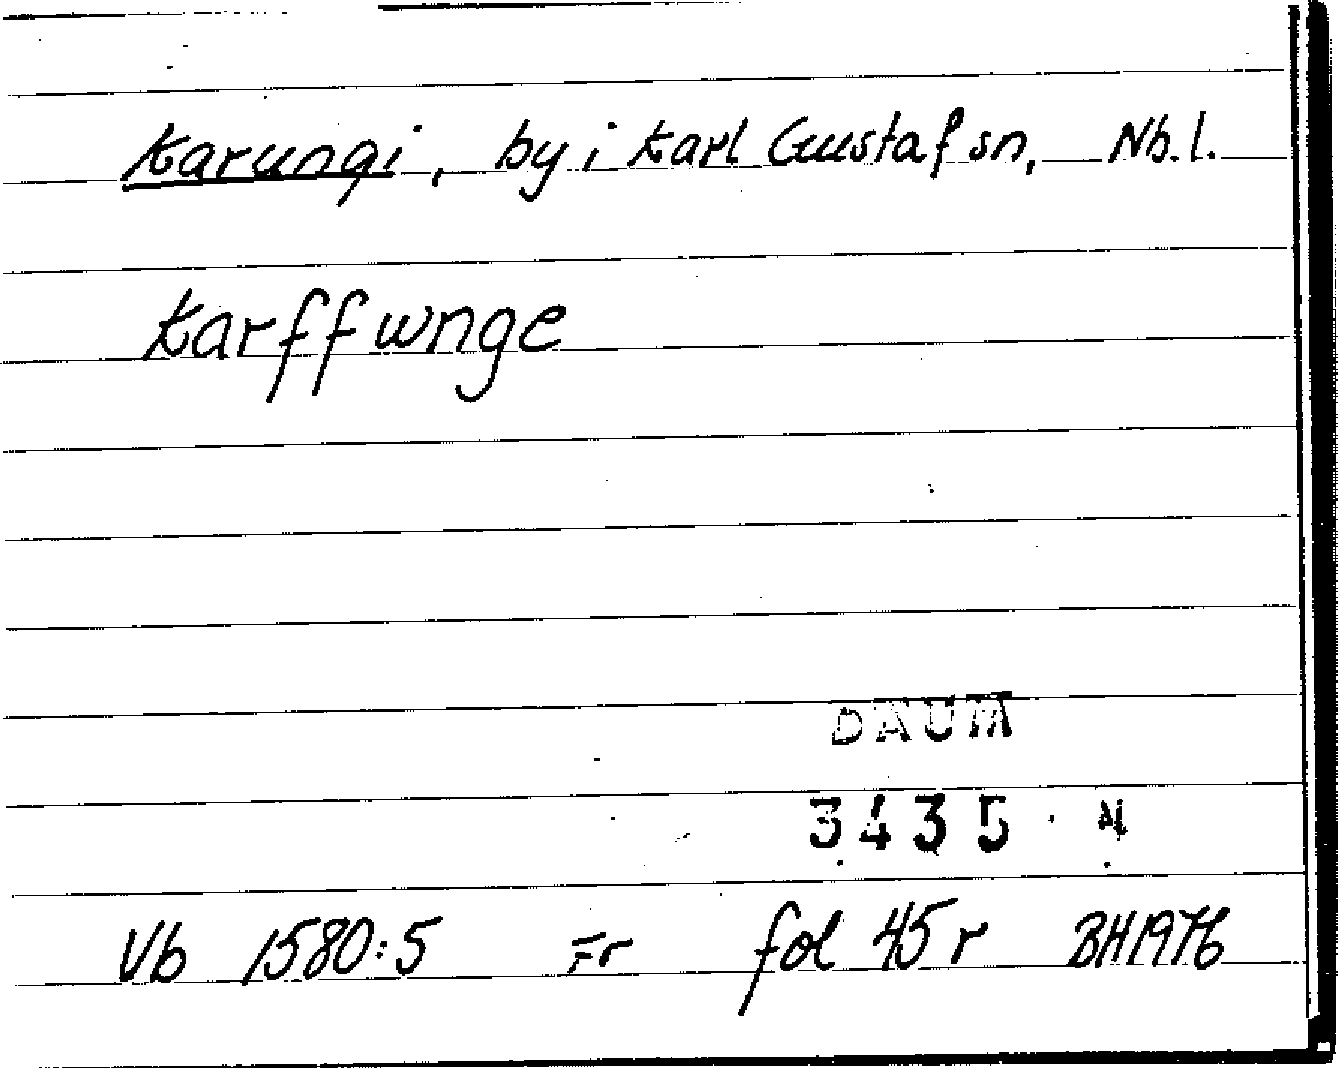 Karungi, by i Karl Gustafsn, Nb.l.
Karffwnge
DAUM
3435 . N
Vb 1580:5 Fr fol 45 r BH1976